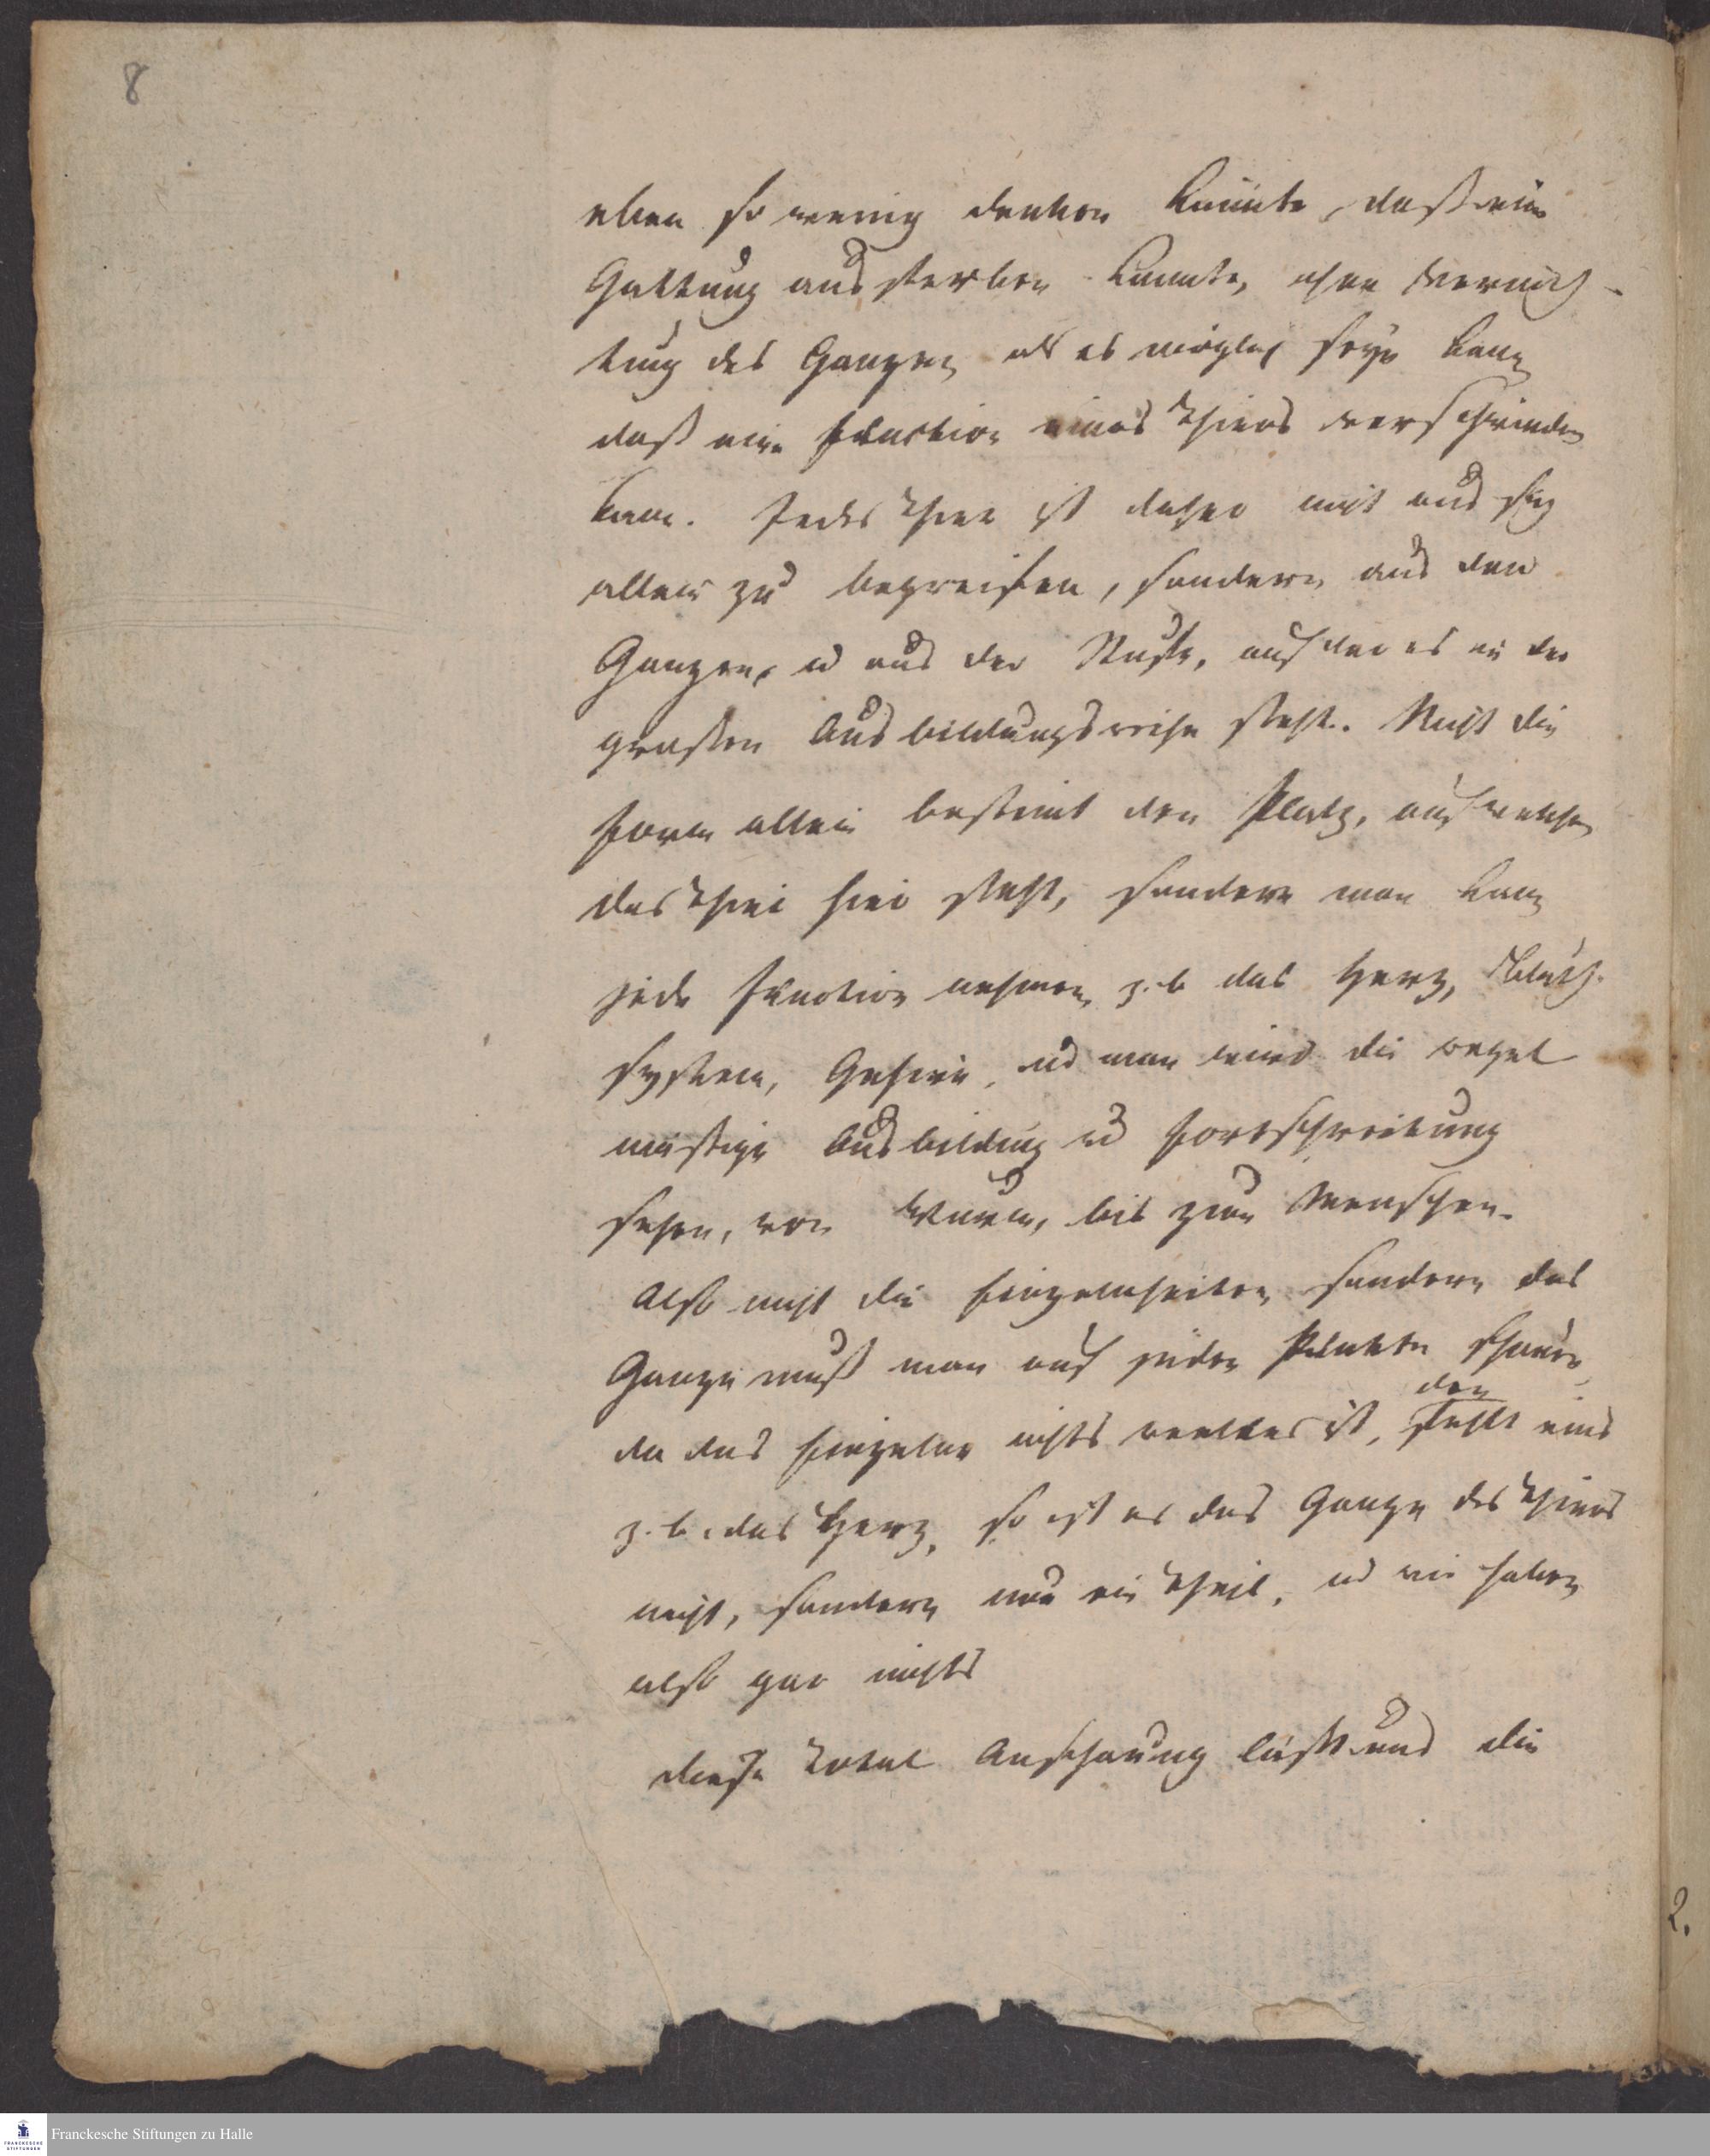 8
eben so wenig denken könnte, daß eine
Gattung aussterben konnte, ohne Vernich-
tung des Ganzen als es möglich seyn kan
daß eine Function eines Thiers verschwinden
kann. Jedes Thier ist daher nicht aus sich
allein zu begreifen, sondern aus dem
Ganzen, u aus der Stufe, auf der es in der
großen Ausbildungsreihe steht. Nicht die
Form allein bestimt den Platz, auf welchen
das Thier hier steht, sondern man kan
jede Function nehmen z.b das Herz, Blut-
system, Gehirn, und man wird die regel
mäßige Ausbildung u Fortschreitung
sehen, von Wurm, bis zum Menschen.
Also nicht die Einzelnheiten sondern das
Ganze muß man auf jeden Punkte schauen
den
da das Einzelne nichts reelles ist, fehlt eins
z.b. das Herz, so ist es das Ganze des Thiers
nicht, sondern nur ein Theil, und wir haben
also gar nichts
diese Total Anschauung läßt uns die
2.
Franckesche Stiftungen zu Halle